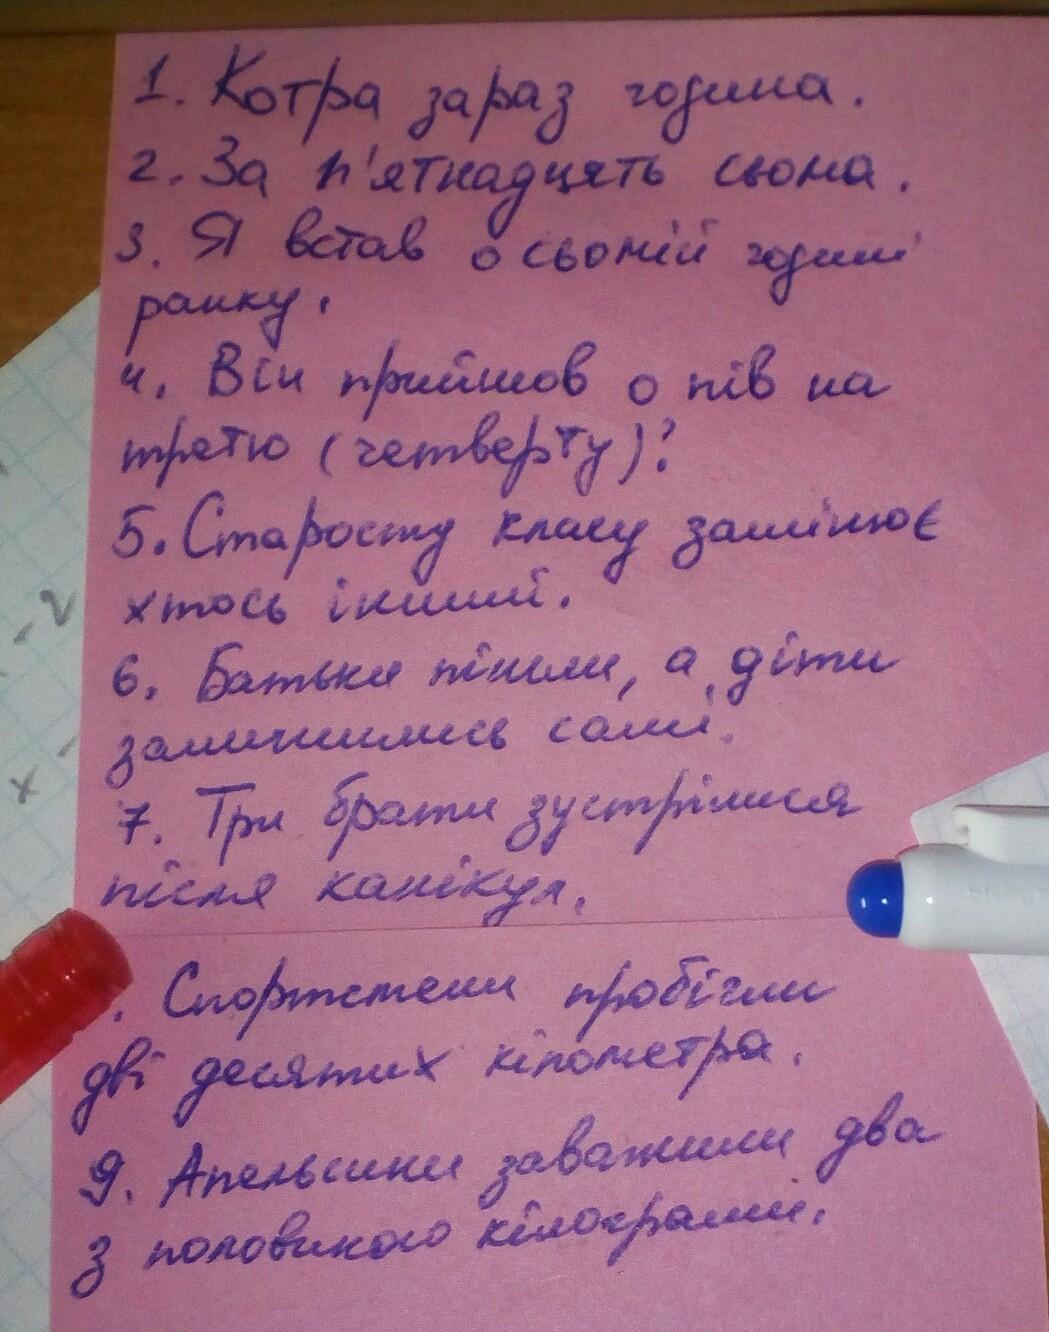 1. Котра зараз година.
2. За п'ятнадцять сьома.
3. Я встав о сьомій годині
ранку.
4. Він прийшов о пів на
третю (четверту)?
5. Старосту класу замінює
хтось інший.
6. Батьки пішли, а діти
залишились самі.
7. Три брати зустрілися
після канікул.
. Спортсмени пробігли
дві десятих кілометра.
9. Апельсини заважили два
з половиною кілограми.
-2
x -